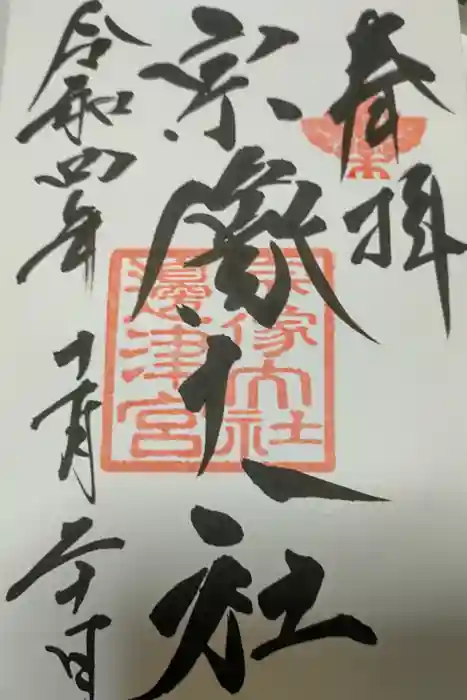 奉拝
宗像大社
令和四年十月二十日
宗像大社
邊津宮